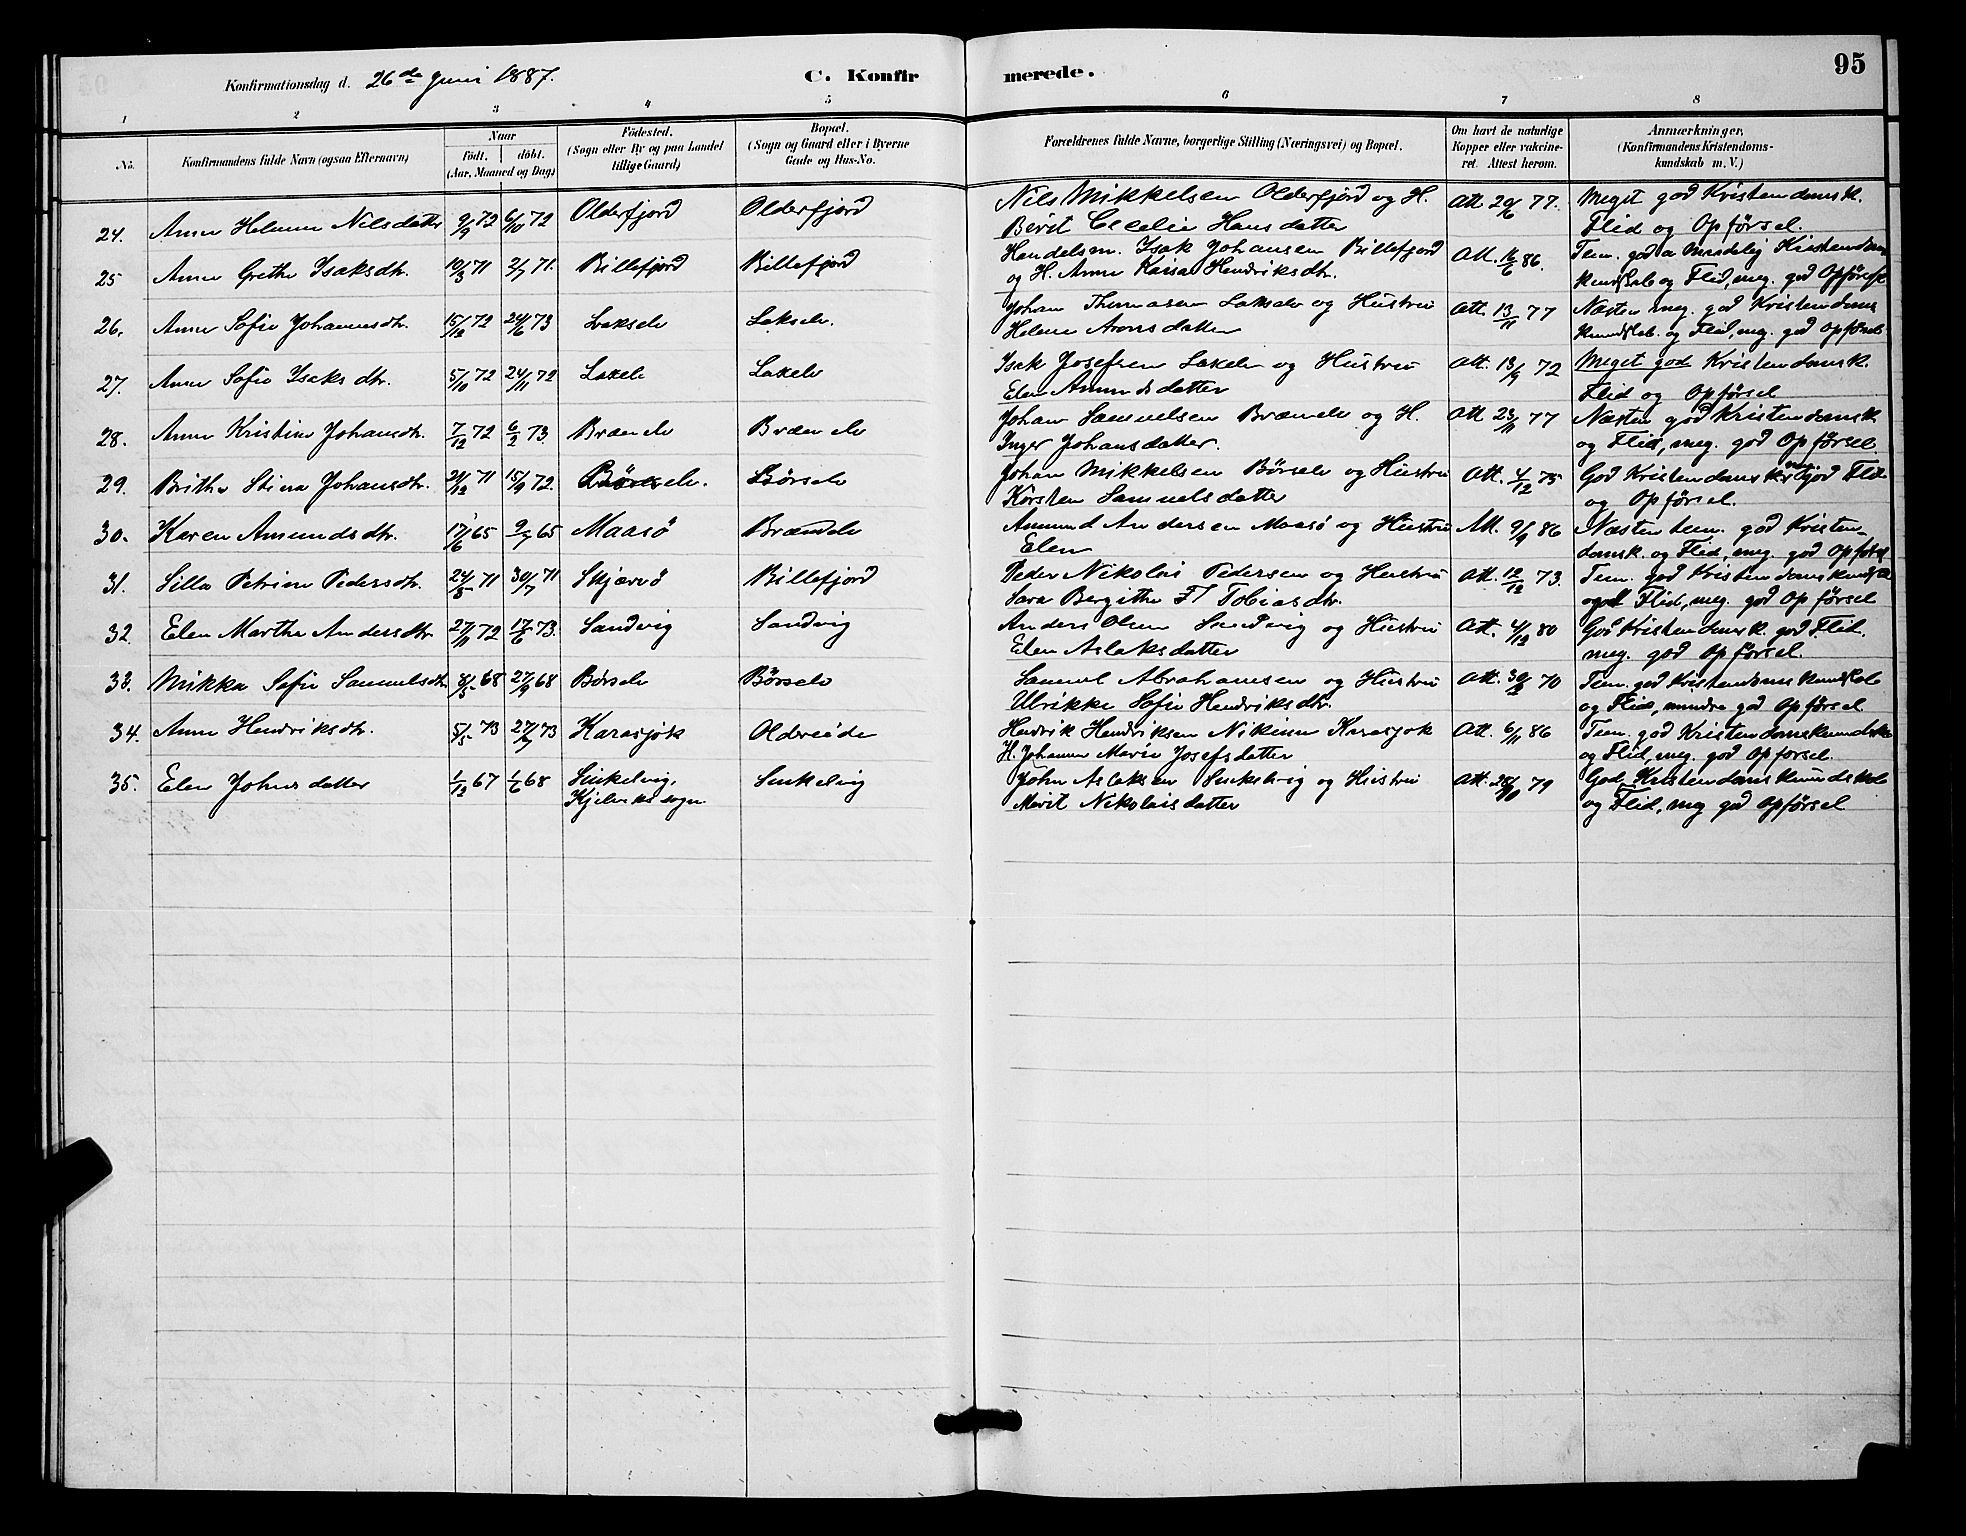 Konfirmationsdag d. 26de Juni 1887.
C. Konfirmerede.
95
1 2 3 4 5 6 7 8
No.
Konfirmandens fulde Navn (ogsaa Efternavn)
Naar
født. døbt.
(Aar, Maaned og Dag)
Fødested.
(Sogn eller By og paa Landet
tillige Gaard)
Bopæl.
(Sogn og Gaard eller i Byerne
Gade og Hus-No.
Forældrenes fulde Navne, borgerlige Stilling (Næringsvei) og Bopæl.
Om havt de naturlige
Kopper eller vakcine-
ret. Attest herom.
Anmærkninger,
(Konfirmandens Kristendoms-
kundskab m. V.)
24. Anne Helene Nilsdatter 9/9 72 6/10 72 Olderfjord Olderfjord Nils Mikkelsen Olderfjord og H. Att. 77. Meget god Kristendomsk.
Berit Cecelie Hansdatter Flid og Opførsel.
25 Anne Grethe Isaksdtr. 19/3 71 2/7 71. Billefjord Billefjord Handelsm. Isak Johansen Billefjord Att. 16/6 86. Tem. god
og H. Anne Kaisa Hendriksdtr. Kundskab og Flid, meg. god Opførsel
26. Anne Sofie Johannsdtr. 15/12 72 24/6 73 Lakselv Lakselv. Johan Thomasen Lakselv og Hustru Att. 13/11 77 Næsten meg. god Kristendoms
Helene Aronsdatter Kundskab. og Flid, meg. god Opførsel
27. Anne Sofie Isaksdtr. 5/10 72 24/11 72 Lakselv Lakselv Isak Josefsen Lakselv og Hustru Att. 13/9 72 Meget god Kristendomsk.
Elen Amundsdatter Flid og Opførsel
28. Anne Kristine Johansdtr. 7/12 72 6/2 73. Brænelv Brænelv Johan Samuelsen Brænelv og H. Att. 23/11 77 Næsten god Kristendomsk
Inger Johansdatter. og Flid, meg. god Opførsel
29. Britha Stina Johansdtr. 71 15/9 72. Børselv. Børselv Johan Mikkelsen Børselv og Hustru Att. 4/12 75 God Kristendomsk. meg. god Flid
Kirsten Samuelsdatter og Opførsel.
30. Karen Amundsdtr. 17/6 65 9/7 65 Maasö Brændelv Amund Andersen Maasø og Hustru Att. 9/9 86 Næsten tem. god Kristen-
Elen domsk. og Flid, meg. god Opførsel
31. Silla Petrine Pedersdtr. 24/5 71 30/7 71 Skjærvö Billefjord Peder Nikolai Pedersen og Hustru Att. 12/12 73. Tem. god Kristendomskundsk
Sara Bergithe Tobiasdtr. og Flid, meg. god Opførsel
32. Elen Marthe Andersdtr 27/11 72 17/6 73. Sandvig Sandvig Anders Olsen Sandvig og Hustru Att. 4/12 80 God Kristendomsk. god Flid.
Elen Aslaksdatter meg. god Opførsel.
33. Mikka Sofie Samuelsdtr 8/5 68 27/9 68 Børselv Børselv Samuel Abrahamsen og Hustru Att. 70 Tem. god Kristendoms kundskab
Ulrikke Sofie Hendriksdtr. og Flid, mindre god Opførsel.
34. Anne Hendriksdtr. 5/5 73 27/7 73 Karasjok Oldereide Hendrik Hendriksen Nikinen Karasjok Att. 6/11 86 Tem. god Kristendomskundsk
H. Johanne Marie Josefsdatter og Flid, meg. god Opførsel.
35. Elen Johnsdatter 1/12 67 1/6 68 Smkelvig, Smkelvig John Aslaksen Smkelvig og Hustru Att. 79 God Kristendomskundskab
Kjelviks sogn Marit Nikolaisdatter og Flid, meg god Opførsel